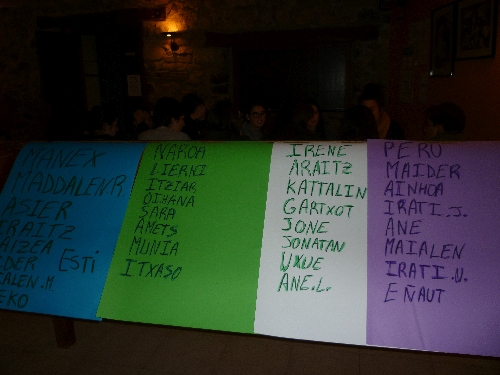 MANEX
MADDALEN.R
ASIER
IRAITZ
AIZEA
IDER
ESTI
ALEN.M
EKO
NAROA
LIERNI
ITZIAR
OIHANA
SARA
AMETS
MUNIA
ITXASO
IRENE
ARAITZ
KATTALIN
GARTXOT
JONE
JONATAN
UXUE
ANE.L.
PERU
MAIDER
AINHOA
IRATI.J.
ANE
MAIALEN
IRATI.U.
EÑAUT